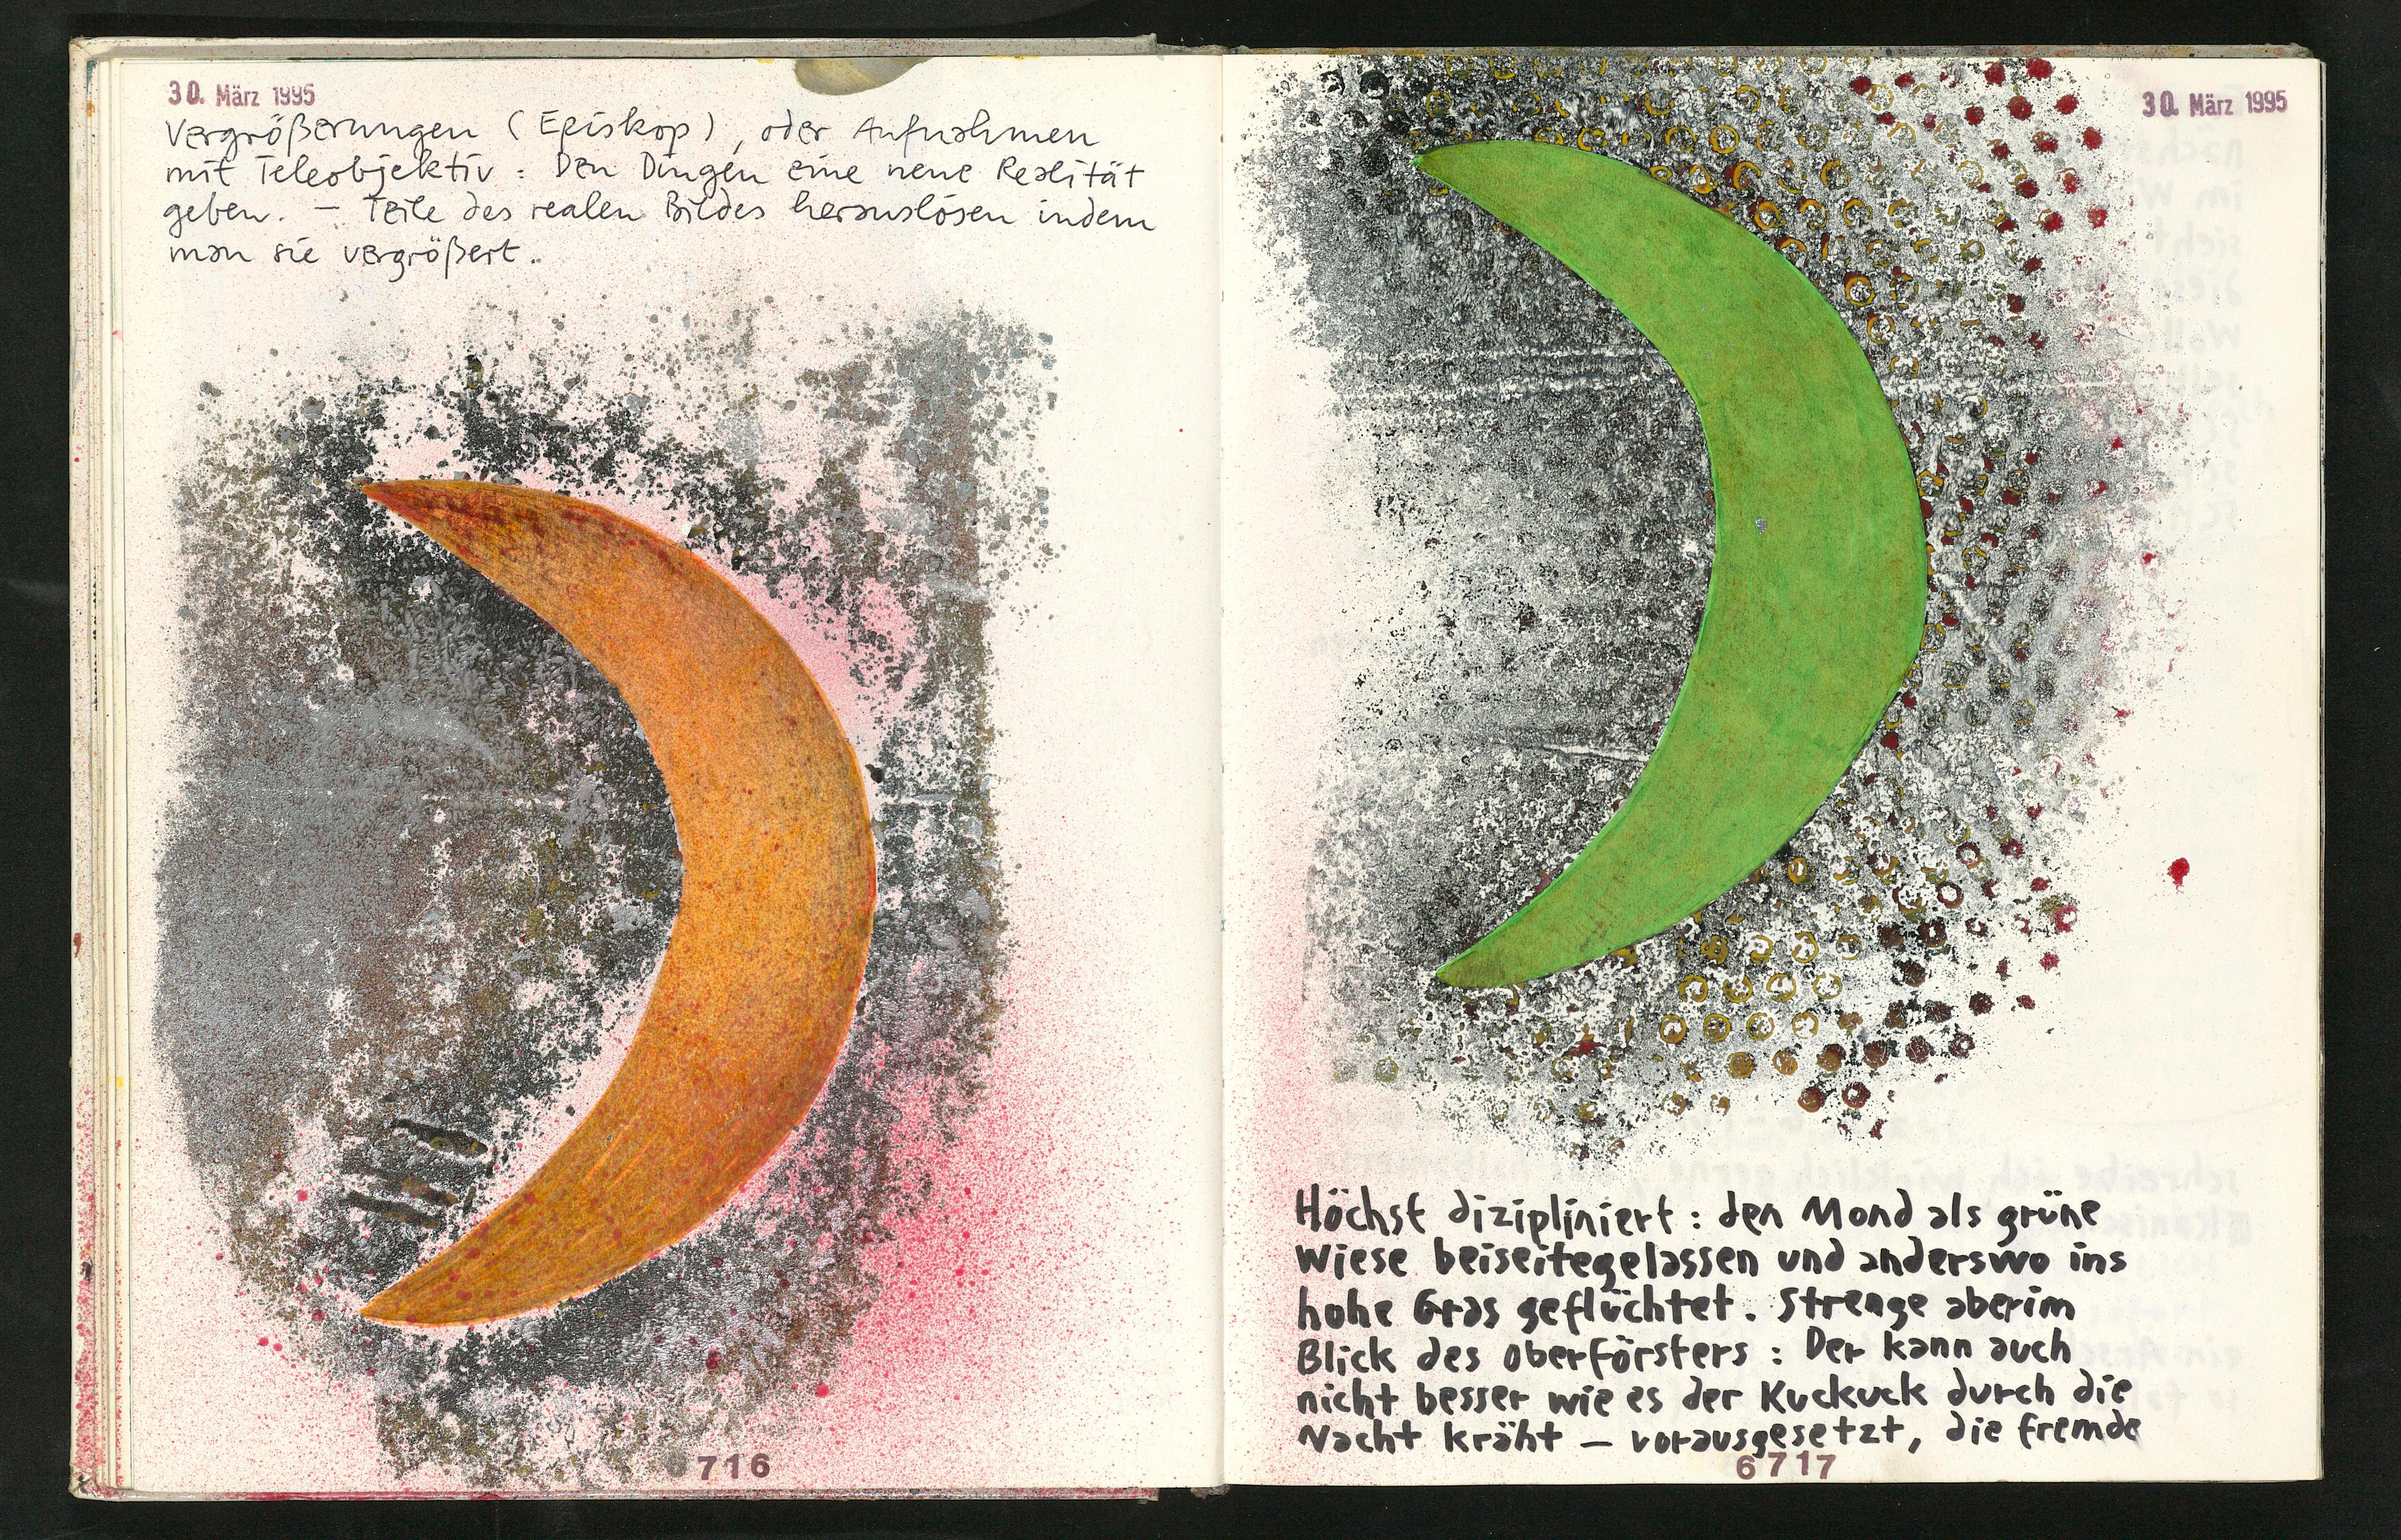 30. März 1995
Vergrößerungen (Episkop), oder Aufnahmen
mit Teleobjektiv : Den Dingen eine neue Realität
geben. – Teile des realen Bildes herauslösen indem
man sie vergrößert.
716
30. März 1995
Höchst dizipliniert : den Mond als grüne
Wiese beiseitegelassen und anderswo ins
hohe Gras geflüchtet. Strenge aber im
Blick des Oberförsters : Der kann auch
nicht besser wie es der Kuckuck durch die
Nacht kräht – vorausgesetzt, die fremde
6717